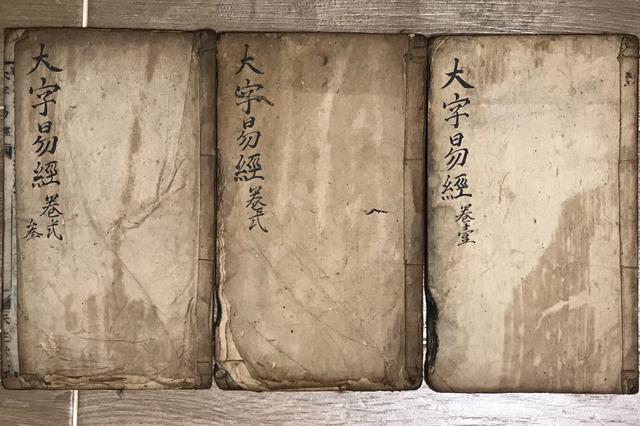 大字易經卷壹
大字易經卷弍
大字易經卷弍
叁